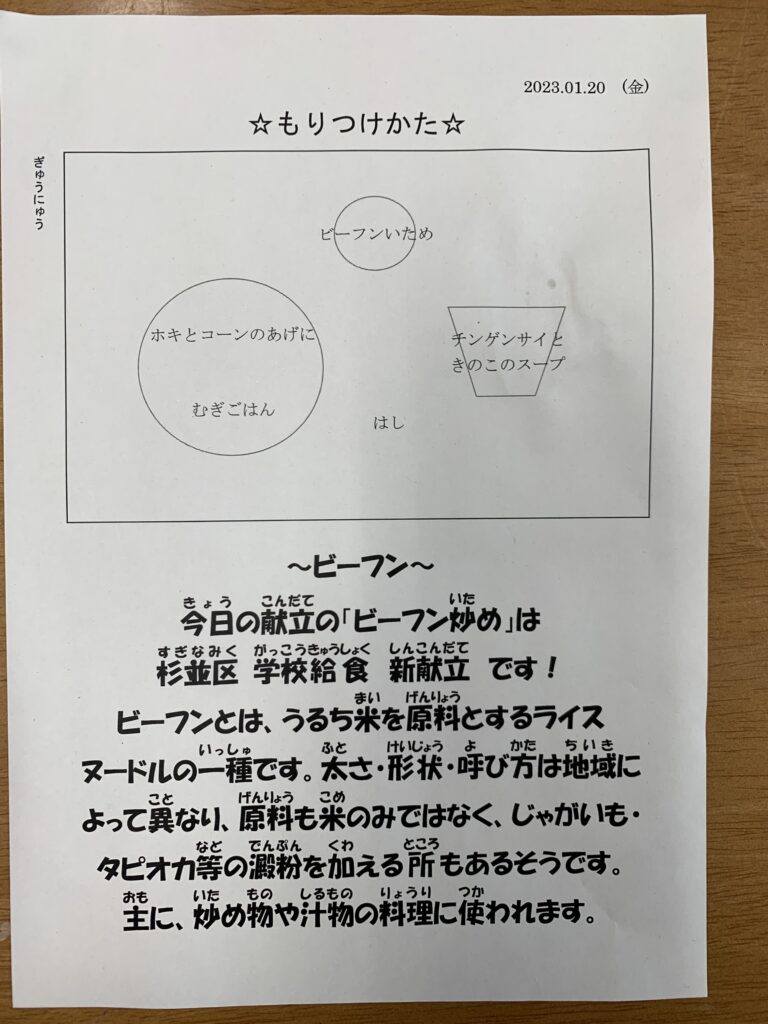 2023.01.20　(金)
☆もりつけかた☆
ぎゅうにゅう
ビーフンいため
ホキとコーンのあげに
チンゲンサイと
きのこのスープ
むぎごはん
はし
～ビーフン～
きょう こんだて いた
今日の献立の「ビーフン炒め」は
すぎなみく がっこうきゅうしょく しんこんだて
杉並区 学校給食 新献立 です！
まい げんりょう
ビーフンとは、うるち米を原料とするライス
いっしゅ ふと けいじょう よ かた ちいき
ヌードルの一種です。太さ・形状・呼び方は地域に
こと げんりょう こめ
よって異なり、原料も米のみではなく、じゃがいも・
など でんぷん くわ ところ
タピオカ等の澱粉を加える所もあるそうです。
おも いた もの しるもの りょうり つか
主に、炒め物や汁物の料理に使われます。